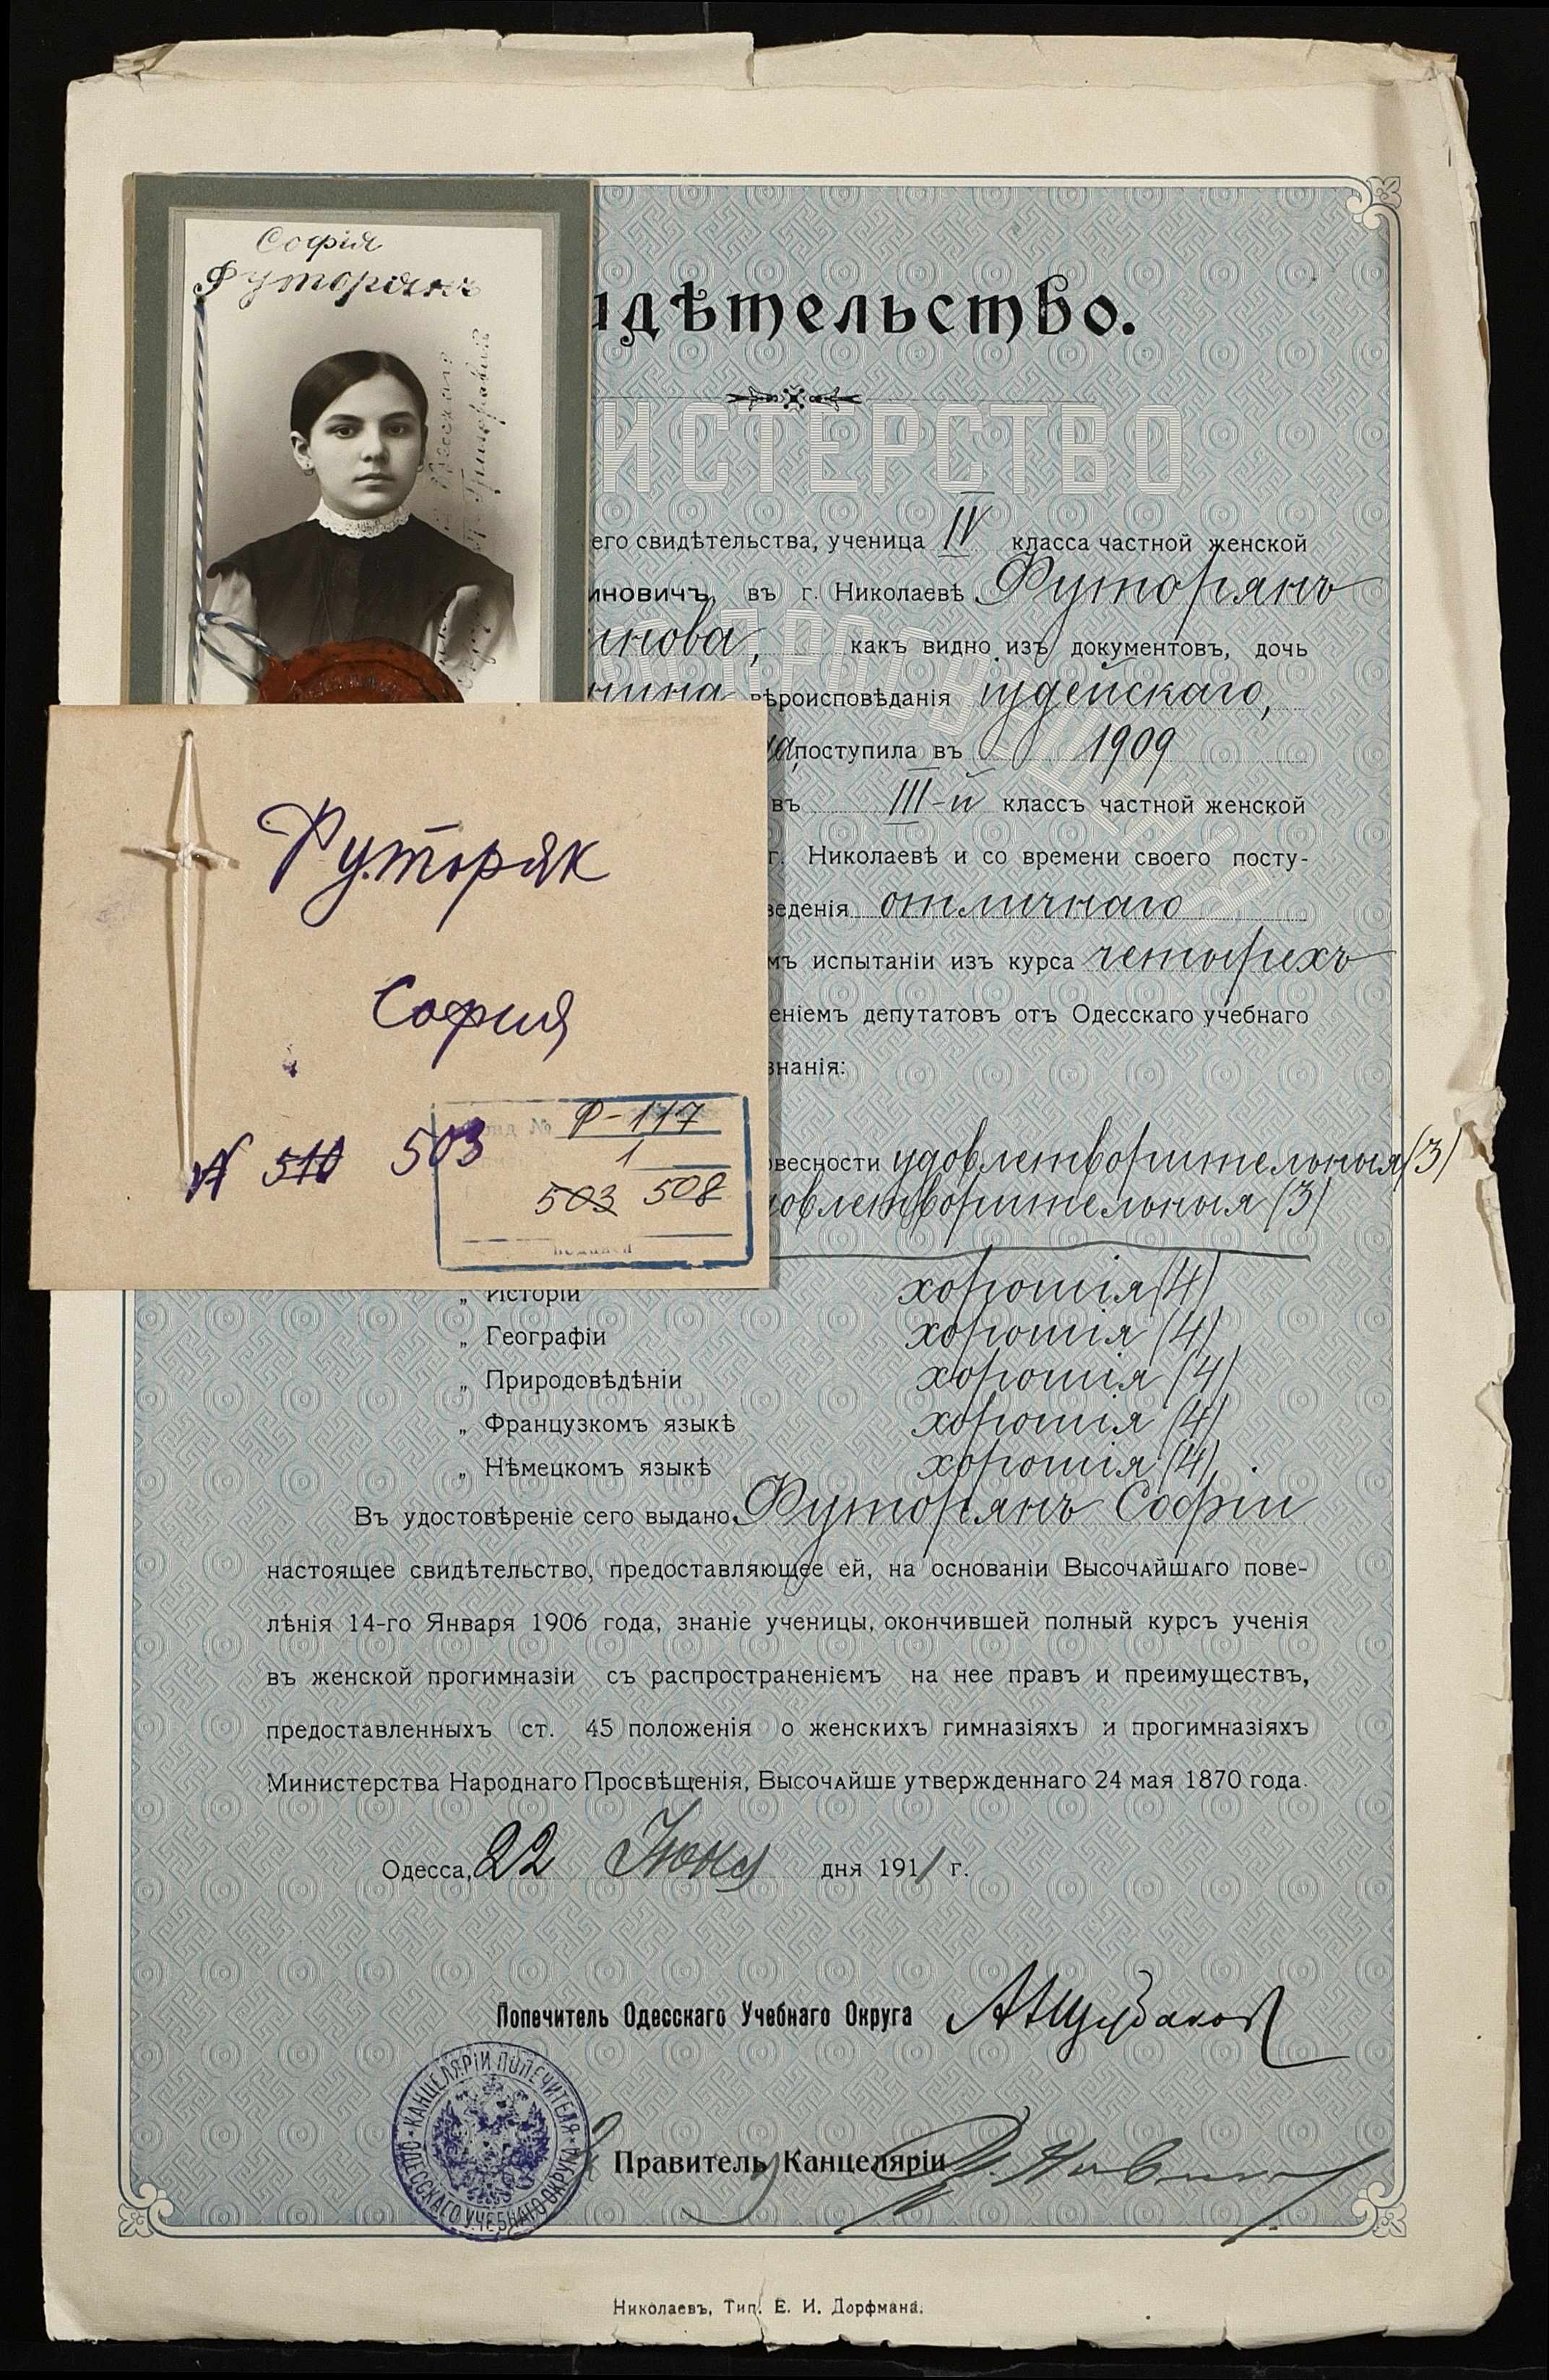 Софія
Футорянъ
идѣтельство.
ИСТЕРСТВО
его свидѣтельства, ученица IV класса частной женской
иновичъ въ г. Николаевѣ Футорянъ
инова, какъ видно изъ документовъ, дочь
нина вѣроисповѣданія іудейскаго,
поступила въ 1909
въ III-й классъ частной женской
г. Николаевѣ и со времени своего посту-
веденія отличнаго
мъ испытаніи изъ курса четырехъ
еніемъ депутатовъ отъ Одесскаго учебнаго
знанія:
овесности удовлетворительныя (3)
овлетворительныя (3)
Футоряк
София
N 510 503
Р-117
1
503 508
„ Исторіи хорошія (4)
„ Географіи хорошія (4)
„ Природовѣдѣніи хорошія (4)
„ Французкомъ языкѣ хорошія (4)
„ Нѣмецкомъ языкѣ хорошія (4)
Въ удостовѣреніе сего выдано Футорянъ Софіи
настоящее свидѣтельство, предоставляющее ей, на основаніи Высочайшаго пове-
лѣнія 14-го Января 1906 года, знаніе ученицы, окончившей полный курсъ ученія
въ женской прогимназіи съ распространеніемъ на нее правъ и преимуществъ,
предоставленныхъ ст. 45 положенія о женскихъ гимназіяхъ и прогимназіяхъ
Министерства Народнаго Просвѣщенія, Высочайше утвержденнаго 24 мая 1870 года.
Одесса, 22 Іюня дня 1911 г.
Попечитель Одесскаго Учебнаго Округа
КАНЦЕЛЯРІИ ПОПЕЧИТЕЛЯ ОДЕССКАГО УЧЕБНАГО ОКРУГА
Правитель Канцеляріи
Николаевъ, Тип. Е. И. Дорфмана.